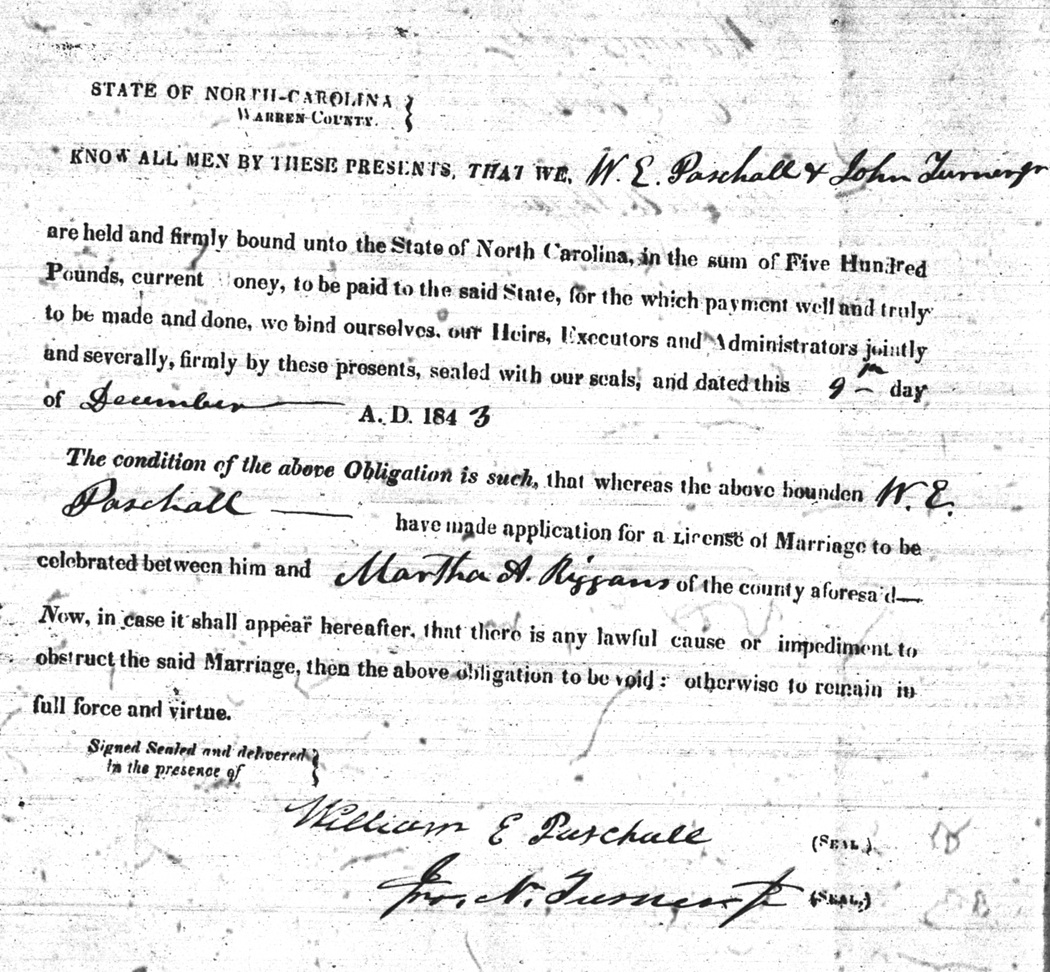 STATE OF NORTH-CAROLINA
WARREN COUNTY.
KNOW ALL MEN BY THESE PRESENTS, THAT WE, W. E. Paschall & John Turner jr
are held and firmly bound unto the State of North Carolina, in the sum of Five Hundred
Pounds, current oney, to be paid to the said State, for the which payment well and truly
to be made and done, we bind ourselves. our Heirs, Executors and Administrators jointly
and severally, firmly by these presents, sealed with our seals, and dated this 9 th day
of December A. D. 1843
The condition of the above Obligation is such, that whereas the above bounden W. E.
Paschall have made application for a License of Marriage to be
celebrated between him and Martha A. Riggans of the county aforesa'd—
Now, in case it shall appear hereafter. that there is any lawful cause or impediment to
obstruct the said Marriage, then the above obligation to be void: otherwise to remain in
full force and virtue.
Signed Sealed and delivered
in the presence of
William E Paschall (SEAL)
Jno. N. Turner jr (SEAL,)